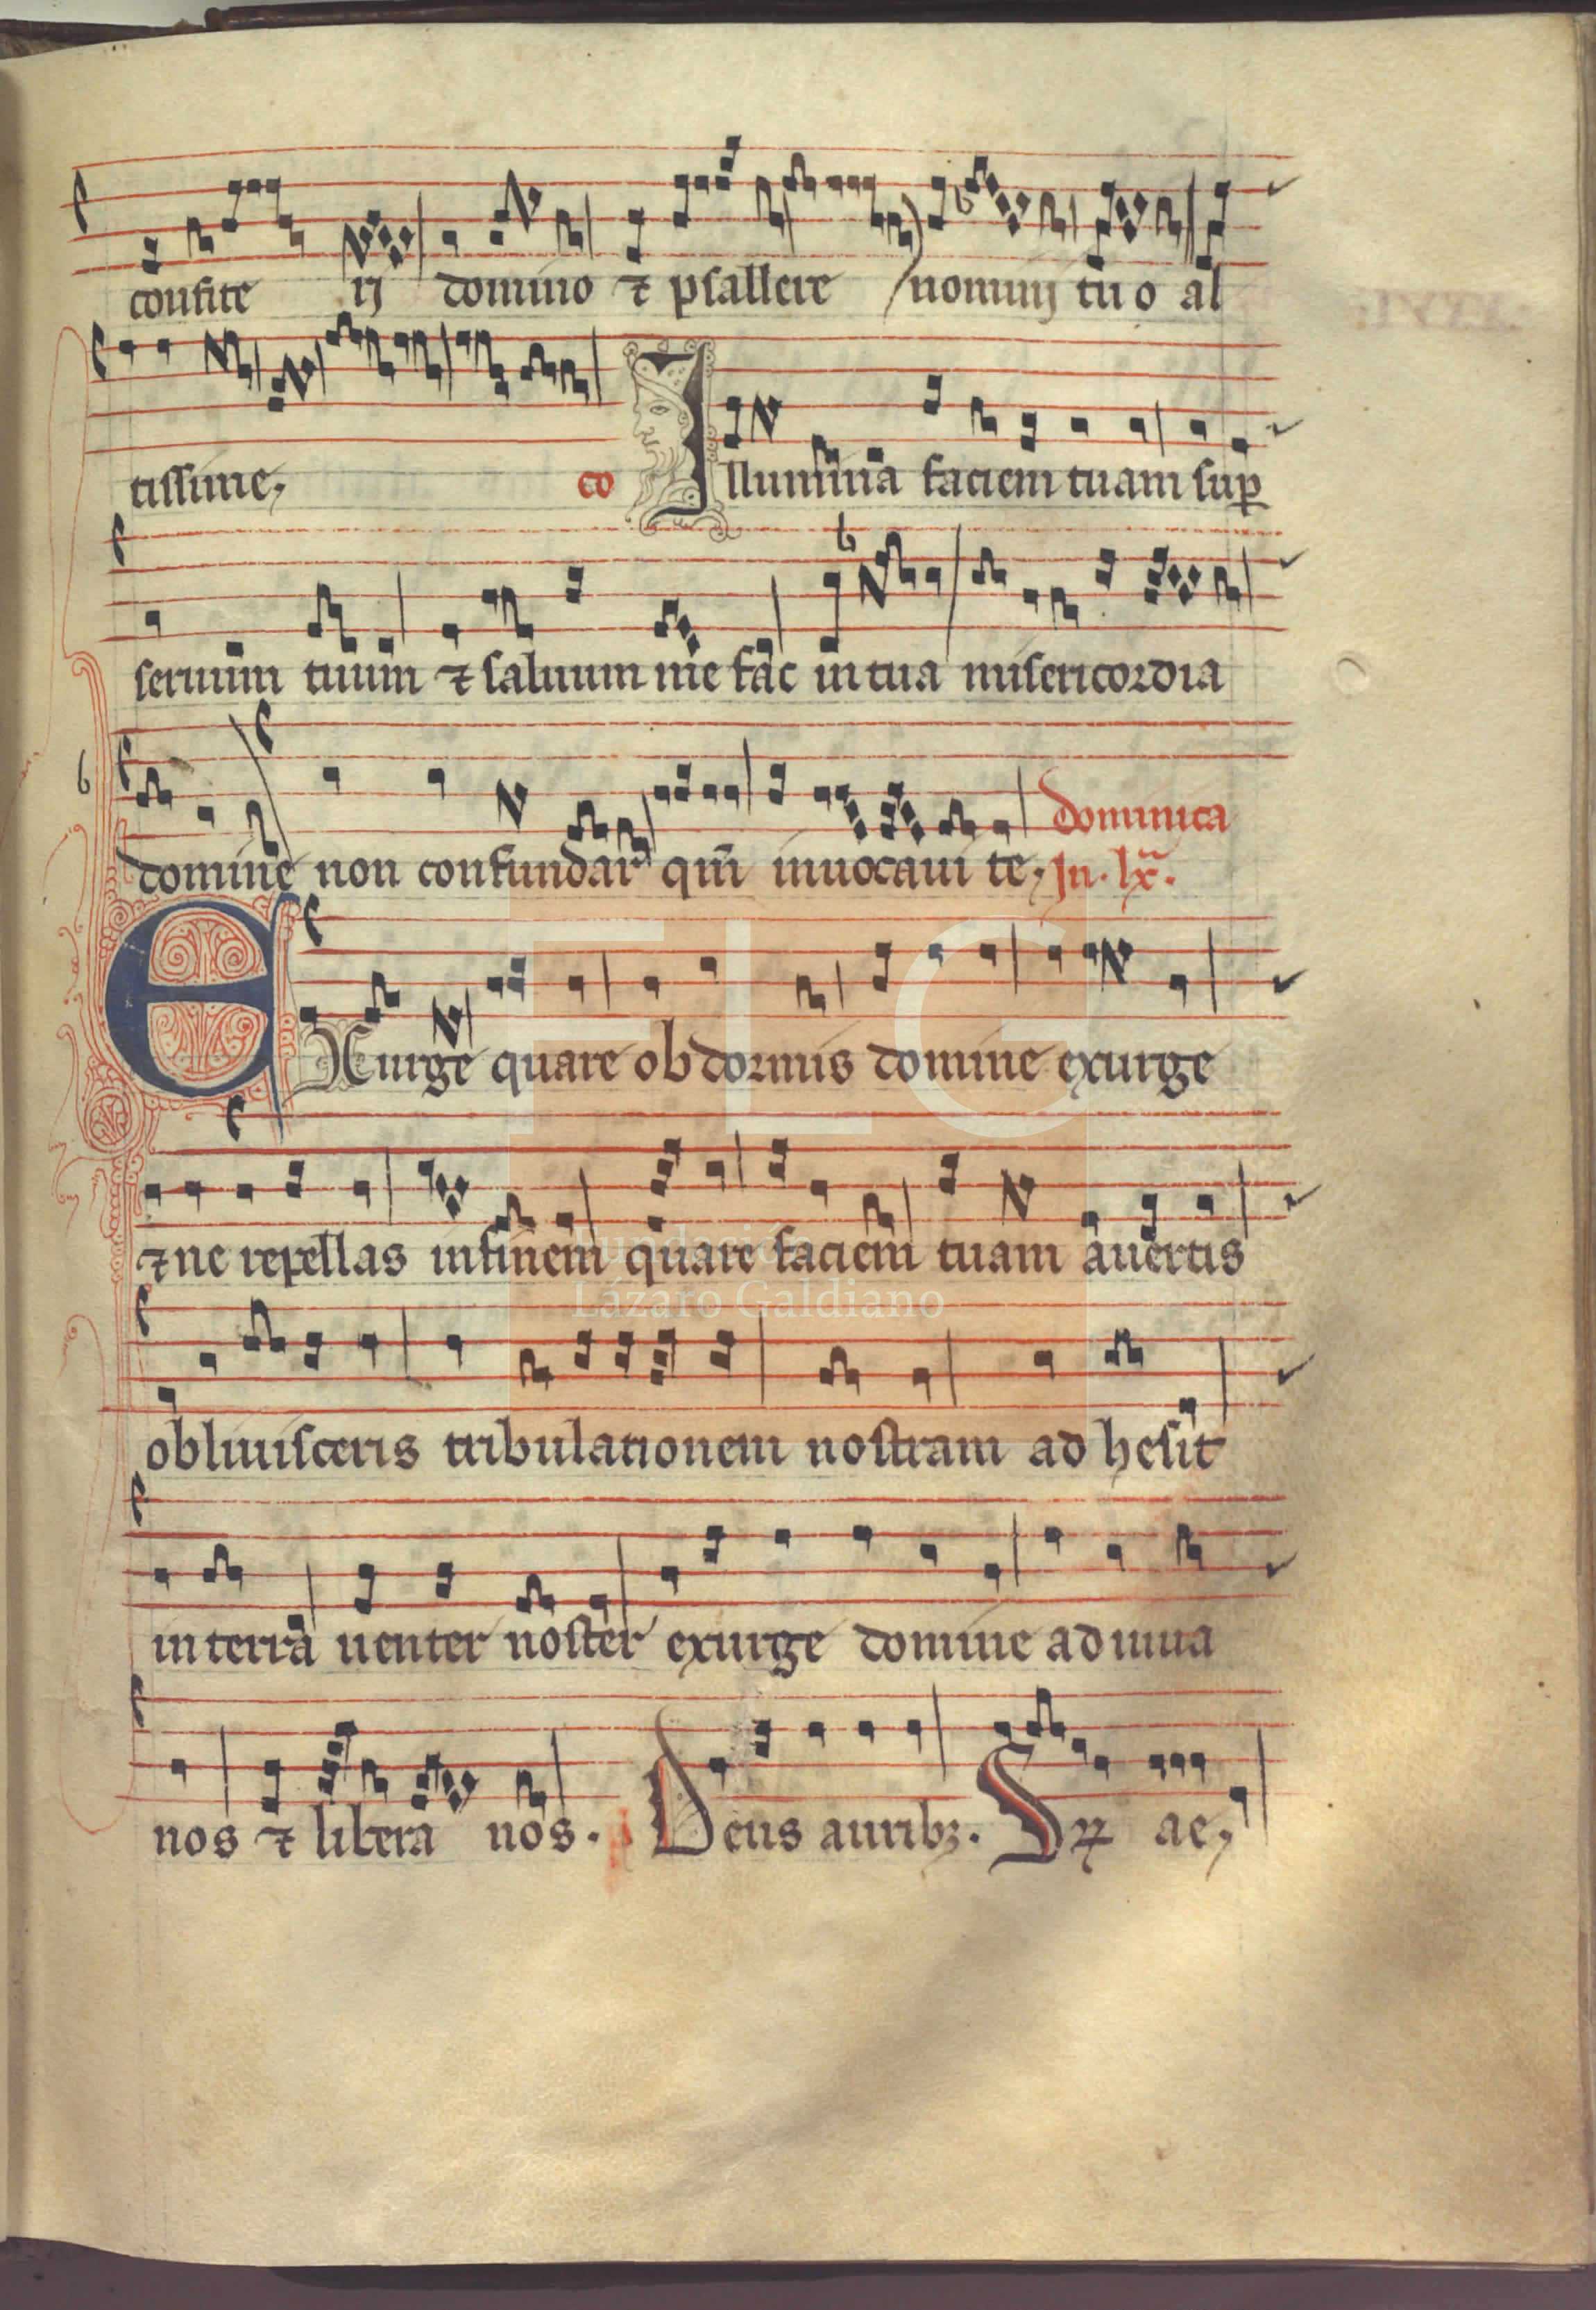 confite rij domino ⁊ psallere nominj tuo al
tissime, co Illumina faciem tuam sup
seruum tuum ⁊ saluum me fac in tua misericordia
domine non confundar qm̄ inuocaui te, dominica
In. lx̄.
EXurge quare obdormis domine exurge
⁊ ne repellas infinem quare faciem tuam auertis
Fundación
Lázaro Galdiano
FLG
obliuisceris tribulationem nostram ad hesit
in terra uenter noster exurge domine ad iuua
nos ⁊ libera nos. Deus auribꝫ. Sꝝ ae,